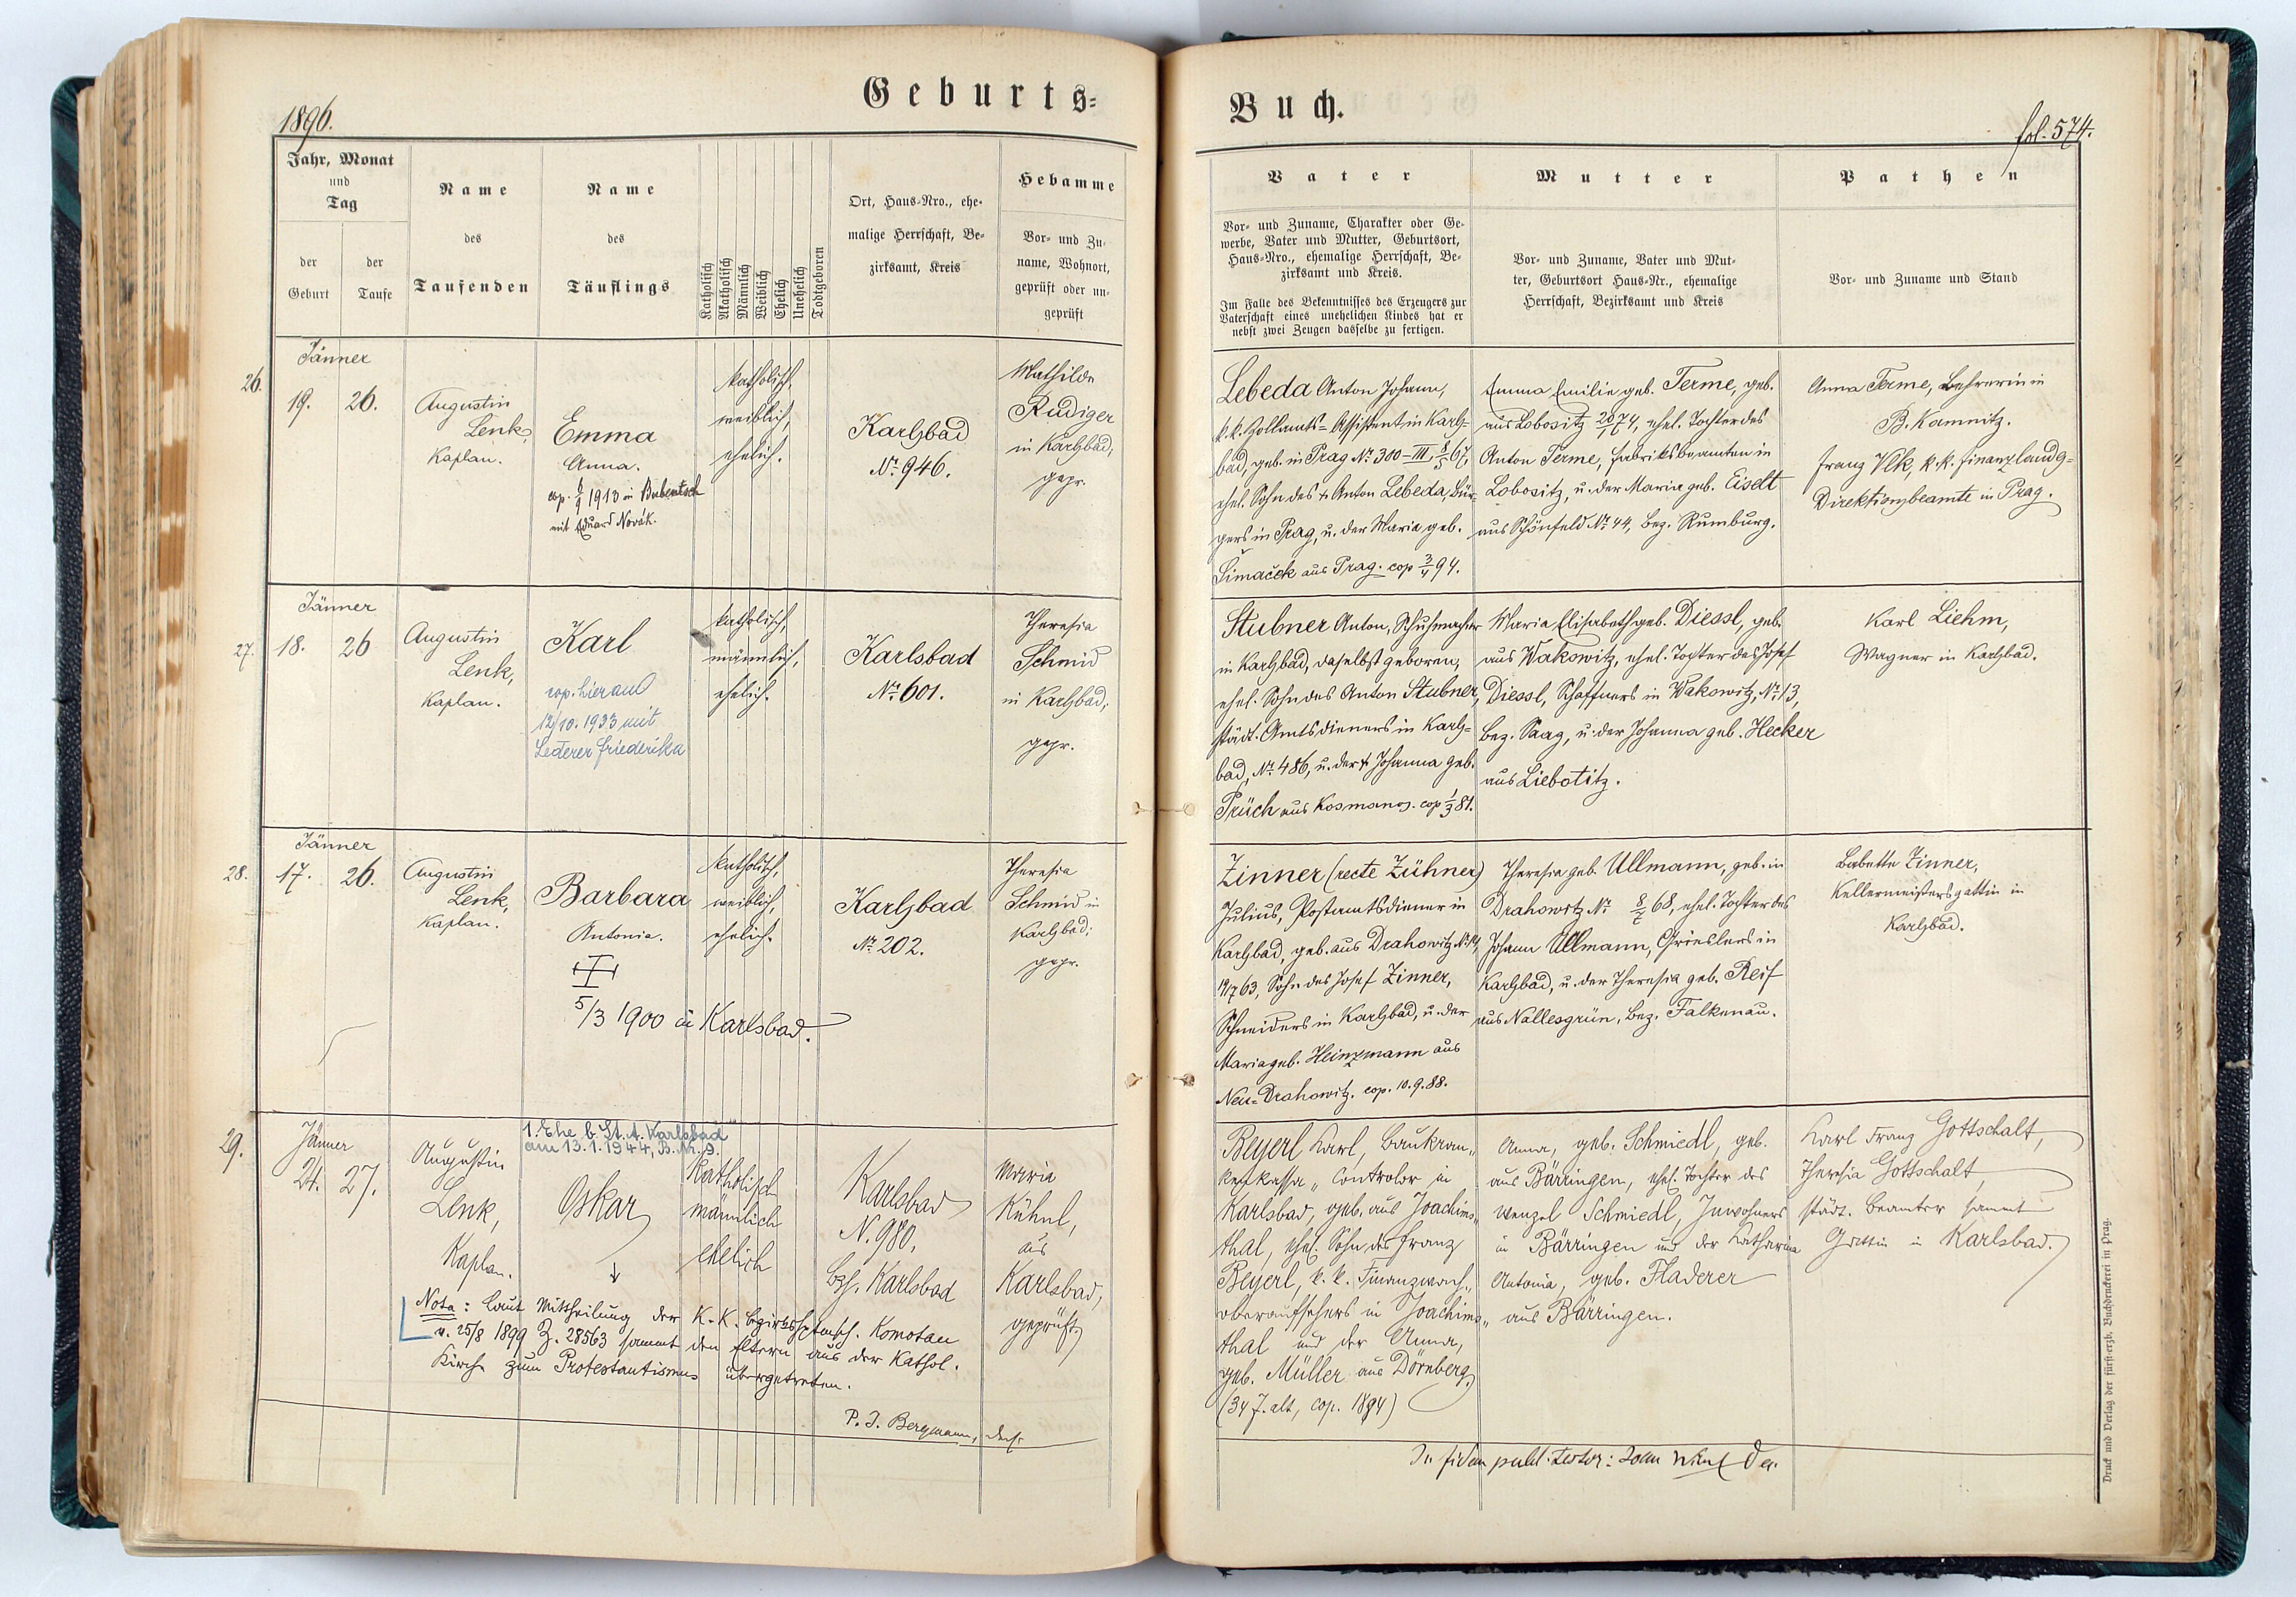 1896.
Geburts=
Jahr, Monat
und
Tag
der
Geburt
der
Taufe
Name
des
Taufenden
Name
des
Täuflings
Katholisch
Akatholisch
Männlich
Weiblich
Ehelich
Unehelich
Todtgeboren
Ort, Haus-Nro., ehe-
malige Herrschaft, Be-
zirksamt, Kreis
Hebamme
Vor- und Zu-
name, Wohnort,
geprüft oder un-
geprüft
26.
Jänner
19. 26.
Augustin
Lenk,
Kaplan.
Emma
Anna.
cop. 6/9 1913 in Bubentsch
mit Eduard Novák.
katholisch,
weiblich,
ehelich.
Karlsbad
Nr. 946.
Mathilde
Rudiger
in Karlsbad,
gepr.
27.
Jänner
18. 26
Augustin
Lenk,
Kaplan.
Karl
cop. hieraul
12/10. 1933 mit
Lederer Friederika
katholisch,
männlich,
ehelich.
Karlsbad
Nr. 601.
Theresia
Schmid
in Karlsbad;
gepr.
28.
Jänner
17. 26.
Augustin
Lenk,
Kaplan.
Barbara
Antonia.
5/3 1900 in Karlsbad.
katholisch,
weiblich,
ehelich.
Karlsbad
Nr. 202.
Theresia
Schmid in
Karlsbad;
gepr.
29.
Jänner
24. 27.
Augustin
Lenk,
Kaplan.
1. Ehe b. St. A. Karlsbad
am 13.1.1944, B. Nr. 9.
Oskar
katholisch
männlich
ehelich
Karlsbad
N. 980.
Bzh. Karlsbad
Maria
Kühnl,
aus
Karlsbad,
geprüft.
Nota: Laut Mittheilung der K.K. Bezirkshptmsch. Komotau
v. 25/8 1899 Z. 28563 sammt den Eltern aus der kathol.
Kirche zum Protestantismus übergetreten.
P. J. Bergmann,
Buch.
fol. 574.
Vater
Vor- und Zuname, Charakter oder Ge-
werbe, Vater und Mutter, Geburtsort,
Haus-Nro., ehemalige Herrschaft, Be-
zirksamt und Kreis.
Im Falle des Bekenntnisses des Erzeugers zur
Vaterschaft eines unehelichen Kindes hat er
nebst zwei Zeugen dasselbe zu fertigen.
Mutter
Vor- und Zuname, Vater und Mut-
ter, Geburtsort Haus-Nr., ehemalige
Herrschaft, Bezirksamt und Kreis
Pathen
Vor- und Zuname und Stand
Lebeda Anton Johann,
k.k. Zollamts-Assistent in Karls-
bad, geb. in Prag Nr. 300-III, 8/5 67,
ehel. Sohn des † Anton Lebeda, Bür-
gers in Prag, u. der Maria geb.
Šimaček aus Prag. cop 3/4 94.
Emma Emilie geb. Terme, geb.
aus Lobositz 20/1 74, ehel. Tochter des
Anton Terme, Fabriksbeamten in
Lobositz, u. der Maria geb. Eiselt
aus Schönfeld Nr. 44, Bez. Rumburg.
Anna Terme, Lehrerin in
B. Kamnitz.
Franz Vlk, k.k. Finanzlands-
Direktionsbeamte in Prag.
Stubner Anton, Schuhmacher
in Karlsbad, daselbst geboren,
ehel. Sohn des Anton Stubner,
städt. Amtsdieners in Karls-
bad, Nr. 486, u. der † Johanna geb.
Prüch aus Kosmanos. cop 1/3 81.
Maria Elisabeth geb. Diessl, geb.
aus Wakowitz, ehel. Tochter des Josef
Diessl, Schaffners in Wakowitz, Nr. 13,
Bez. Saaz, u. der Johanna geb. Hecker
aus Liebotitz.
Karl Liehm,
Wagner in Karlsbad.
Zinner (recte Zühner)
Julius, Postamtsdiener in
Karlsbad, geb. aus Drahowitz Nr. 14,
19/7 63, Sohn des Josef Zinner,
Schneiders in Karlsbad, u. der
Maria geb. Heinzmann aus
Neu-Drahowitz. cop. 10.9.88.
Theresia geb. Ullmann, geb. in
Drahowitz Nr. 68, ehel. Tochter des
Johann Ullmann, Grieslers in
Karlsbad, u. der Theresia geb. Reif
aus Nallesgrün, Bez. Falkenau.
Babette Zinner,
Kellermeistersgattin in
Karlsbad.
Beyerl Karl, Baukran„
kenkassa„ Controlor in
Karlsbad, geb. aus Joachims„
thal, ehel. Sohn des Franz
Beyerl, k.k. Finanzwach„
oberaufsehers in Joachims„
thal und der Anna,
geb. Müller aus Dörnberg
(34 J. alt, cop. 1894)
Anna, geb. Schmiedl, geb.
aus Bärringen, ehel. Tochter des
Wenzel Schmiedl, Inwohners
in Bärringen und der Katharina
Antonia, geb. Fladerer
aus Bärringen.
Karl Franz Gottschalt,
Theresia Gottschalt,
städt. Beamter sammt
Gattin in Karlsbad.
In fidem publ. testor:
Druck und Verlag der fürst-erzb. Buchdruckerei in Prag.